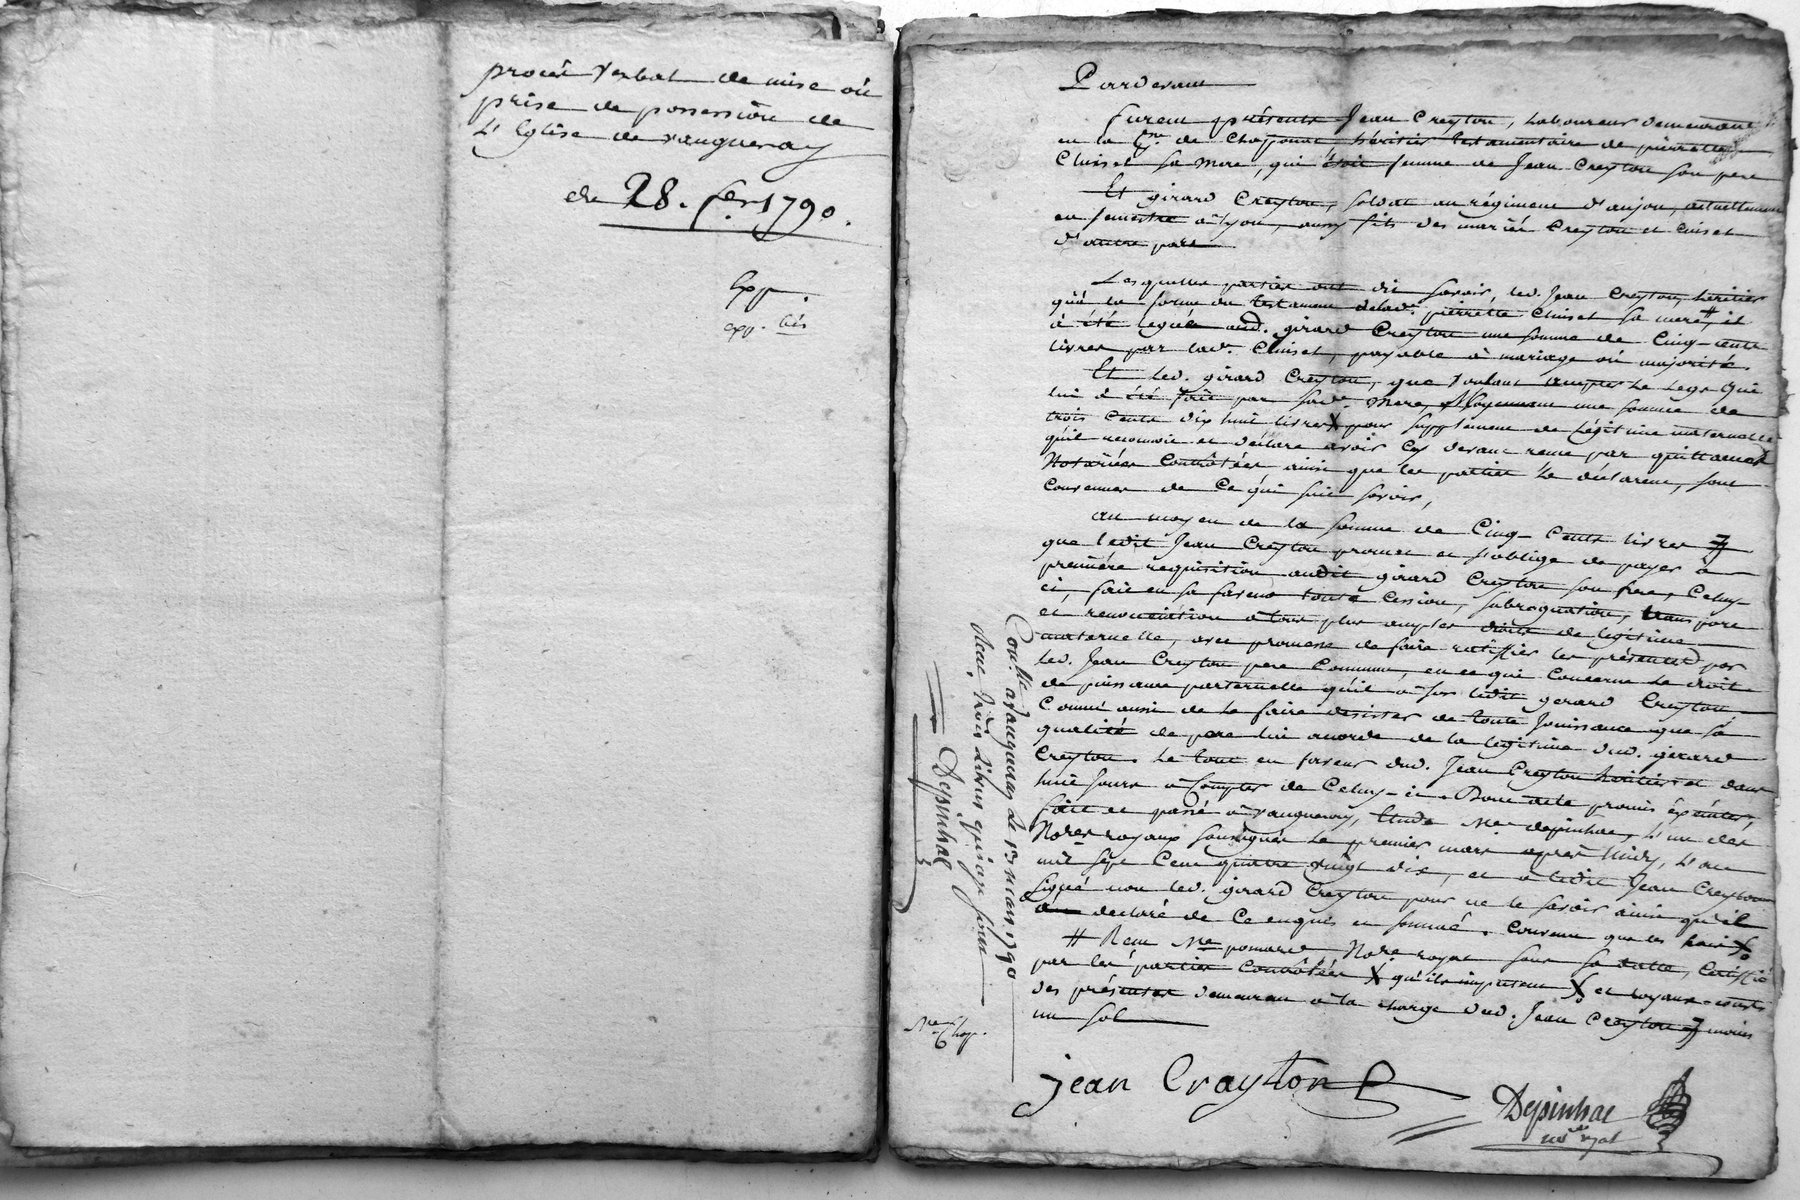 procès verbal de mise ou
prise de possession de
L'Eglise de vaugneray
du 28. fer 1790.
Exp.
exp. bis
Pardevant
furent présents Jean Creyton, Laboureur demeurant
en la de Chaponot héritier testamentaire de pierrette
Cluisel sa mere, qui étoit femme de Jean Creyton son pere
Et girard Creyton, soldat au régiment d'anjou, actuellement
en semestre à Lyon, aussy fils des mariés Creyton et Cluisel
d'autre part
Lesquelles parties ont dit savoir, led. Jean Creyton, héritier
qué la forme du testament delad. pierrette Cluisel sa mere #, il
à été legué aud. girard Creyton une somme de Cinq-cents
livres par lade. Cluisel, payable à mariage où majorité
Et led. girard Creyton, que voulant accepter Le Legs qui
lui à été fait par sade. Mere, Moyennant une somme de
trois cents dix huit livres X pour supplement de Légitime maternelle
qu'il reconnoit et déclare avoir Cy devant reçue par quittances
Notariées Contrôlées, ainsi que les parties Le déclarent, sont
Convenues de Ce qui suit savoir,
au moyen de la somme de Cinq-Cents livres
que ledit Jean Creyton promet et s'oblige de payer à
première requisition audit girard Creyton son frere, Celuy-
ci, fait en sa faveur toute Cession, subrogation, transport
et renonciation à tous plus amples droits de légitime
maternelle, avec promesse de faire ratiffier les présentes par
led. Jean Creyton pere Commun, en ce qui Concerne Le droit
de puissance parternelle qu'il à sur ledit gerard Creyton
Comme aussi de Le faire desister de toute Jouissance que sa
qualité de pere lui accorde de la legitime dud. gerard
Creyton. Le tout en faveur dud. Jean Creyton héritier et dans
huit Jours à Compter de Celuy-ci. Dont acte promis éxécuter,
fait et passé à vaugneray, Etude Me depinhac, L'un des
Nores royaux soussignés Le premier mars après Midy, L'an
mil sept Cent quatre vingt dix, et à ledit Jean Creyton
signé non led. girard Creyton pour ne le savoir ainsi qu'il
à declaré de Ce enquis et sommé. Convenu que les frais
# Recu Me pomard Nore royal sous sa datte, Certiffié
par les parties Contrôlées X qu'ils imputent X et loyaux-coûts
des présentes demeurent à la charge dud. Jean Creyton moins
un sol
Jean Crayston
Depinhac
nore royal
Conllé a vaugneray Le 13 mars 1790
Recu trois Livres quinze sous
Depinhac